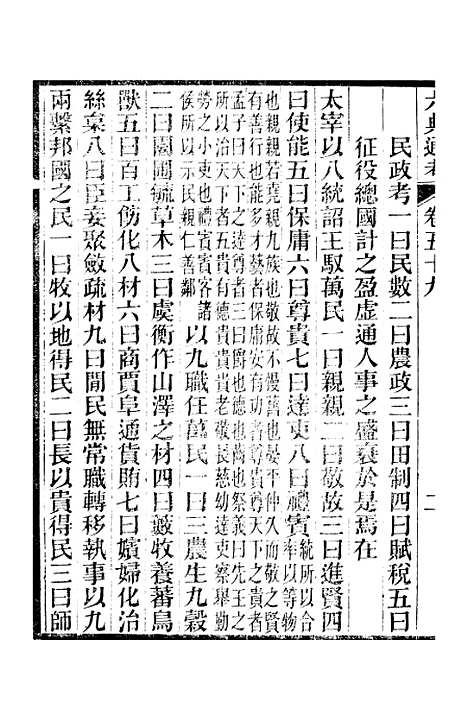 六典通考 卷五十九 二
民政考一曰民數二曰農政三曰田制四曰賦稅五曰
征役總國計之盈虛通人事之盛衰於是焉在
太宰以八統詔王馭萬民一曰親親二曰敬故三曰進賢四
曰使能五曰保庸六曰尊貴七曰達吏八曰禮賓統所以合
牽以等物
也親親若堯親九族也敬故不慢舊也晏平仲久而敬之賢
有善行也能多才藝者保庸安有功者尊貴尊天下之貴者
孟子曰天下之達尊者三曰爵也德也齒也祭義曰先王之
所以治天下者五貴有德貴貴貴老敬長慈幼達吏察舉勤
勞之小吏也禮賓賓客諸
侯所以示民親仁善鄰
以九職任萬民一曰三農生九穀
二曰園圃毓草木三曰虞衡作山澤之材四曰藪牧養蕃鳥
獸五曰百工飭化八材六曰商賈阜通貨賄七曰嬪婦化治
絲枲八曰臣妾聚斂疏材九曰閒民無常職轉移執事以九
兩繫邦國之民一曰牧以地得民二曰長以貴得民三曰師